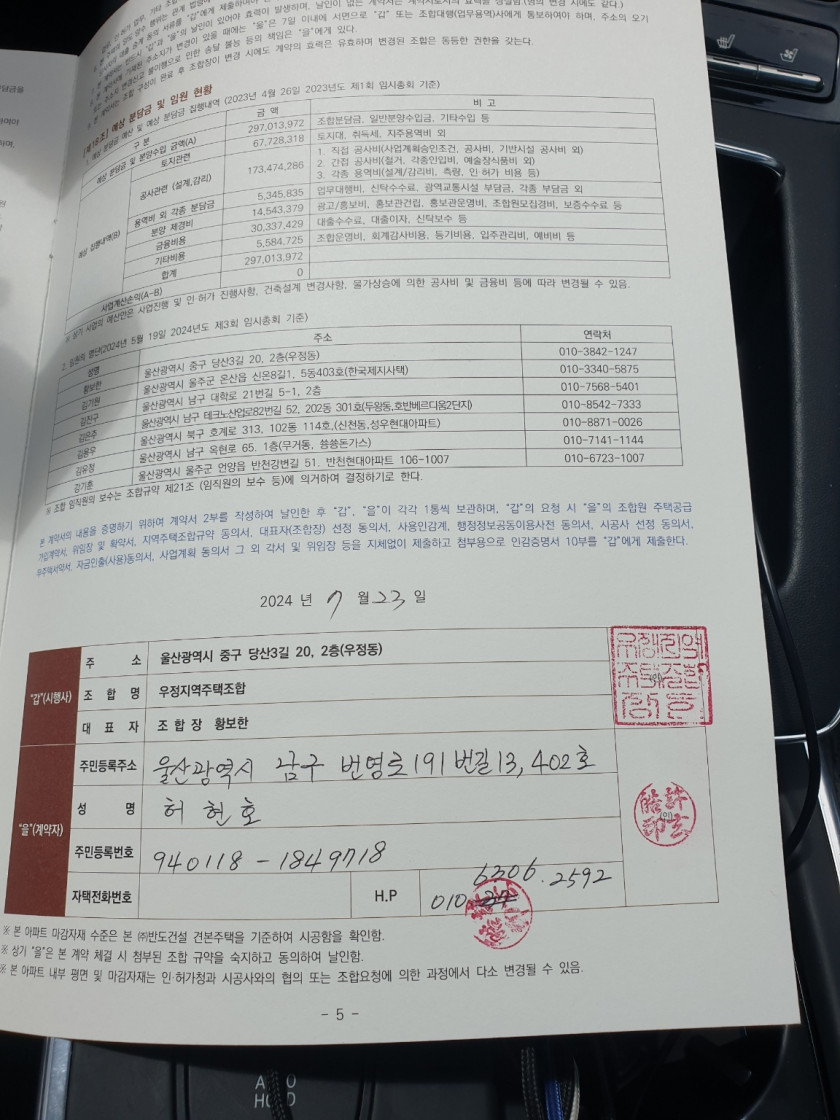 "갑" 또는 조합대행(업무용역)사에게 통보하여야 하며, 주소의 모기
책임은 "을"에게 있다.
계약의 효력은 유효하며 변경된 조합은 동등한 권한을 갖는다.
예상 분담금 및 임원 현황
예상 분담금 예산 및 예상 분담금 집행내역 (2023년 4월 26일 2023년도 제1회 임시총회 기준)
구 분 금 액 비 고
예상 분담금 및 분양수입 금액(A) 297,013,972 조합분담금, 일반분양수입금, 기타수입 등
예상 집행내역(B) 토지관련 67,728,318 토지대, 취득세, 지주용역비 외
공사관련 (설계,감리) 173,474,286 1. 직접 공사비(사업계획승인조건, 공사비, 기반시설 공사비 외)
2. 간접 공사비(철거, 각종인입비, 예술장식품비 외)
3. 각종 용역비(설계/감리비, 측량, 인·허가 비용 등)
용역비 외 각종 분담금 5,345,835 업무대행비, 신탁수수료, 광역교통시설 부담금, 각종 부담금 외
분양 제경비 14,543,379 광고/홍보비, 홍보관건립, 홍보관운영비, 조합원모집경비, 보증수수료 등
금융비용 30,337,429 대출수수료, 대출이자, 신탁보수 등
기타비용 5,584,725 조합운영비, 회계감사비용, 등기비용, 입주관리비, 예비비 등
합계 297,013,972
사업계산손익(A-B) 0
※ 상기 사업의 예산안은 사업진행 및 인·허가 진행사항, 건축설계 변경사항, 물가상승에 의한 공사비 및 금융비 등에 따라 변경될 수 있음.
2. 임원의 명단(2024년 5월 19일 2024년도 제3회 임시총회 기준)
성명 주소 연락처
황보한 울산광역시 중구 당산3길 20, 2층(우정동) 010-3842-1247
김기원 울산광역시 울주군 온산읍 신온8길1, 5동403호(한국제지사택) 010-3340-5875
김진구 울산광역시 남구 대학로 21번길 5-1, 2층 010-7568-5401
김은주 울산광역시 남구 테크노산업로82번길 52, 202동 301호(두왕동,호반베르디움2단지) 010-8542-7333
김용우 울산광역시 북구 호계로 313, 102동 114호,(신천동,성우현대아파트) 010-8871-0026
김유정 울산광역시 남구 옥현로 65. 1층(무거동, 쓩쓩돈가스) 010-7141-1144
김기훈 울산광역시 울주군 언양읍 반천강변길 51. 반천현대아파트 106-1007 010-6723-1007
※ 조합 임직원의 보수는 조합규약 제21조 (임직원의 보수 등)에 의거하여 결정하기로 한다.
본 계약서의 내용을 증명하기 위하여 계약서 2부를 작성하여 날인한 후 "갑", "을"이 각각 1통씩 보관하며, "갑"의 요청 시 "을"의 조합원 주택공급
가입계약서, 위임장 및 확약서, 지역주택조합규약 동의서, 대표자(조합장) 선정 동의서, 사용인감계, 행정정보공동이용사전 동의서, 시공사 선정 동의서,
무주택서약서, 자금인출(사용)동의서, 사업계획 동의서 그 외 각서 및 위임장 등을 지체없이 제출하고 첨부용으로 인감증명서 10부를 "갑"에게 제출한다.
2024 년 7 월 23 일
"갑"(시행사) 주 소 울산광역시 중구 당산3길 20, 2층(우정동)
조 합 명 우정지역주택조합
대 표 자 조 합 장 황보한 (인)
"을"(계약자) 주민등록주소 울산광역시 남구 번영로191번길 13, 402호
성 명 허현호 (인)
주민등록번호 940118-1849718
자택전화번호 H.P 010 6306.2592
※ 본 아파트 마감자재 수준은 본 ㈜반도건설 견본주택을 기준하여 시공함을 확인함.
※ 상기 "을"은 본 계약 체결 시 첨부된 조합 규약을 숙지하고 동의하여 날인함.
※ 본 아파트 내부 평면 및 마감자재는 인·허가청과 시공사와의 협의 또는 조합요청에 의한 과정에서 다소 변경될 수 있음.
- 5 -